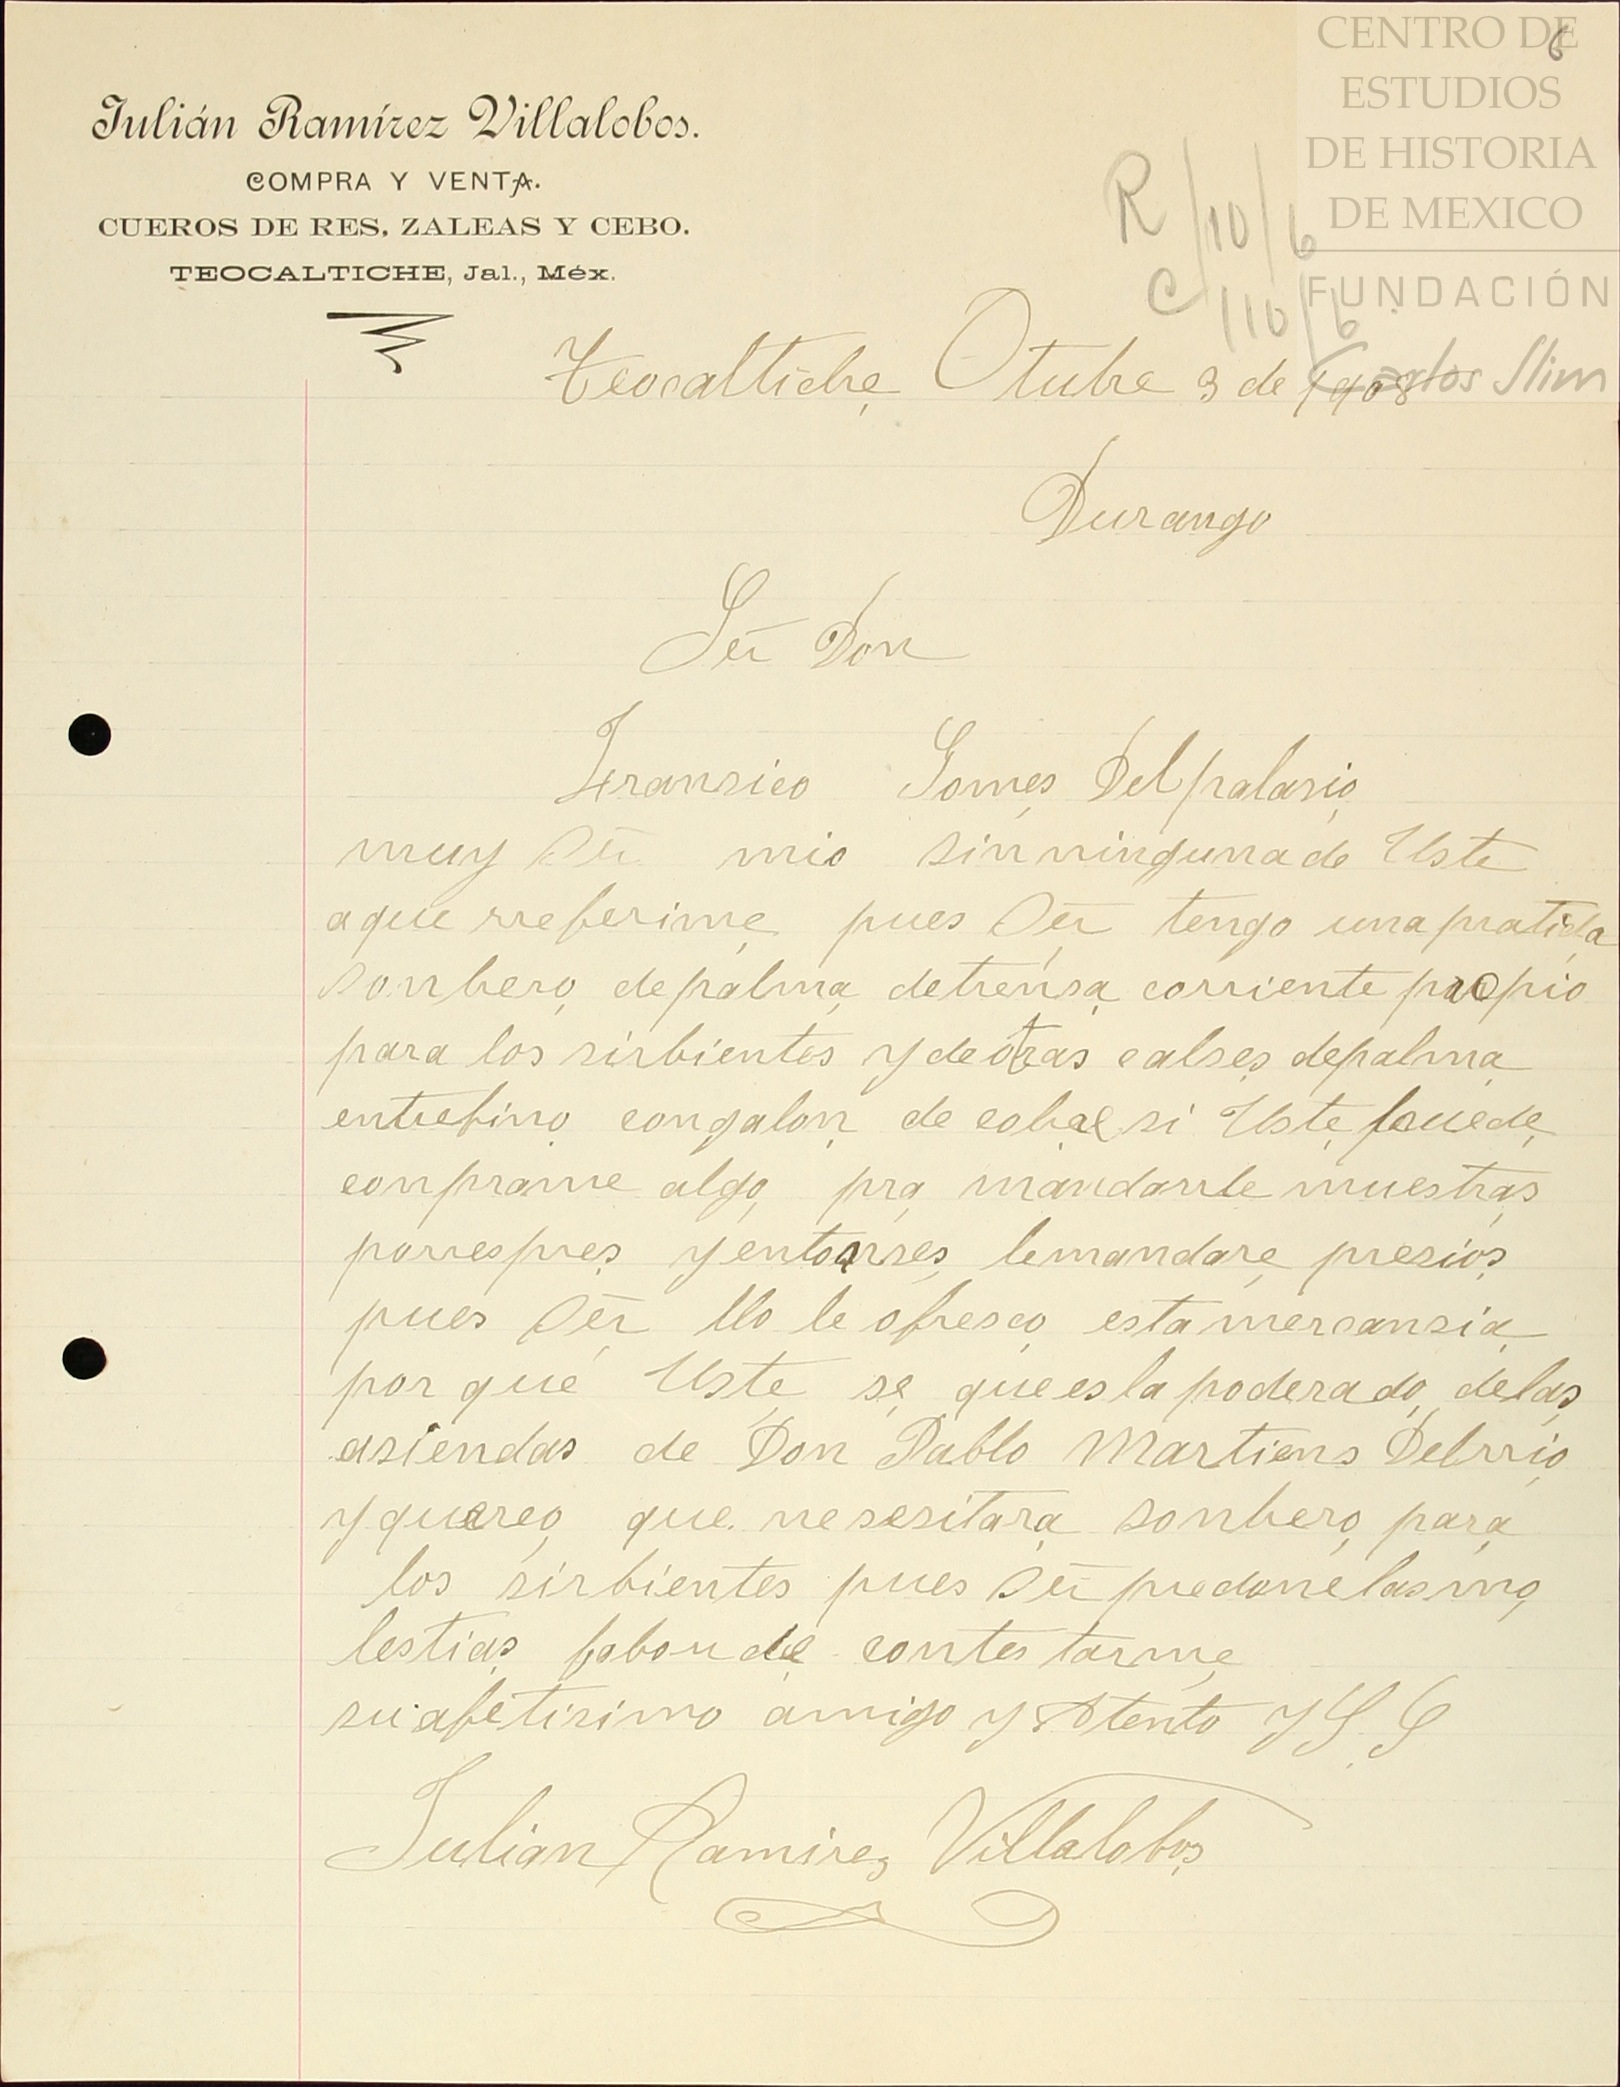 CENTRO DE
ESTUDIOS
DE HISTORIA
DE MEXICO
FUNDACIÓN
Carlos Slim
6
Julián Ramírez Villalobos.
COMPRA Y VENTA.
CUEROS DE RES, ZALEAS Y CEBO.
TEOCALTICHE, Jal., Méx.
R/10/6
C/110/6
Teocaltiche Otubre 3 de 1908
Durango
Sr̄ Don
Fransico Gomes Delpalasio
muy Sr̄ mio sinningunade Uste
aque rreferime pues Sr̄ tengo unapratida
sonbero depalma detrensa corriente propio
para los sirbientes y de otras calses depalma
entrefino congalon de cobre si Uste puede
conprame algo pra mandarrle muestras
porrespres yentonses lemandare presios
pues Sr̄ llo le ofresco estamercansia
por que Uste se queeslapoderado delas
asiendas de Don Pablo Martiens Delrrio
yquereo que nesesitara sonbero para
los sirbientes pues Sr̄ predonelasmo
lestias fabor de contestarme
suafetisimo amigo y Atento y S. S
Julian Ramires Villalobos